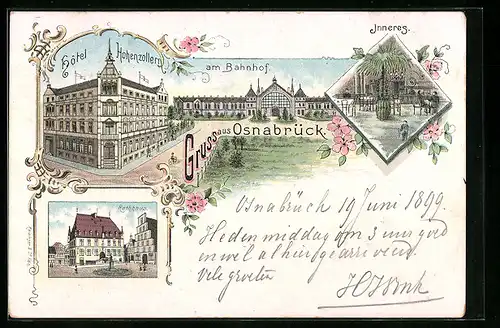 Hôtel Hohenzollern
am Bahnhof.
Inneres.
Gruss aus Osnabrück.
Rathhaus
Osnabrück 19 Juni 1899
Heden middag om 3 uur goed
en wel alhier gearriveerd.
Vele groeten